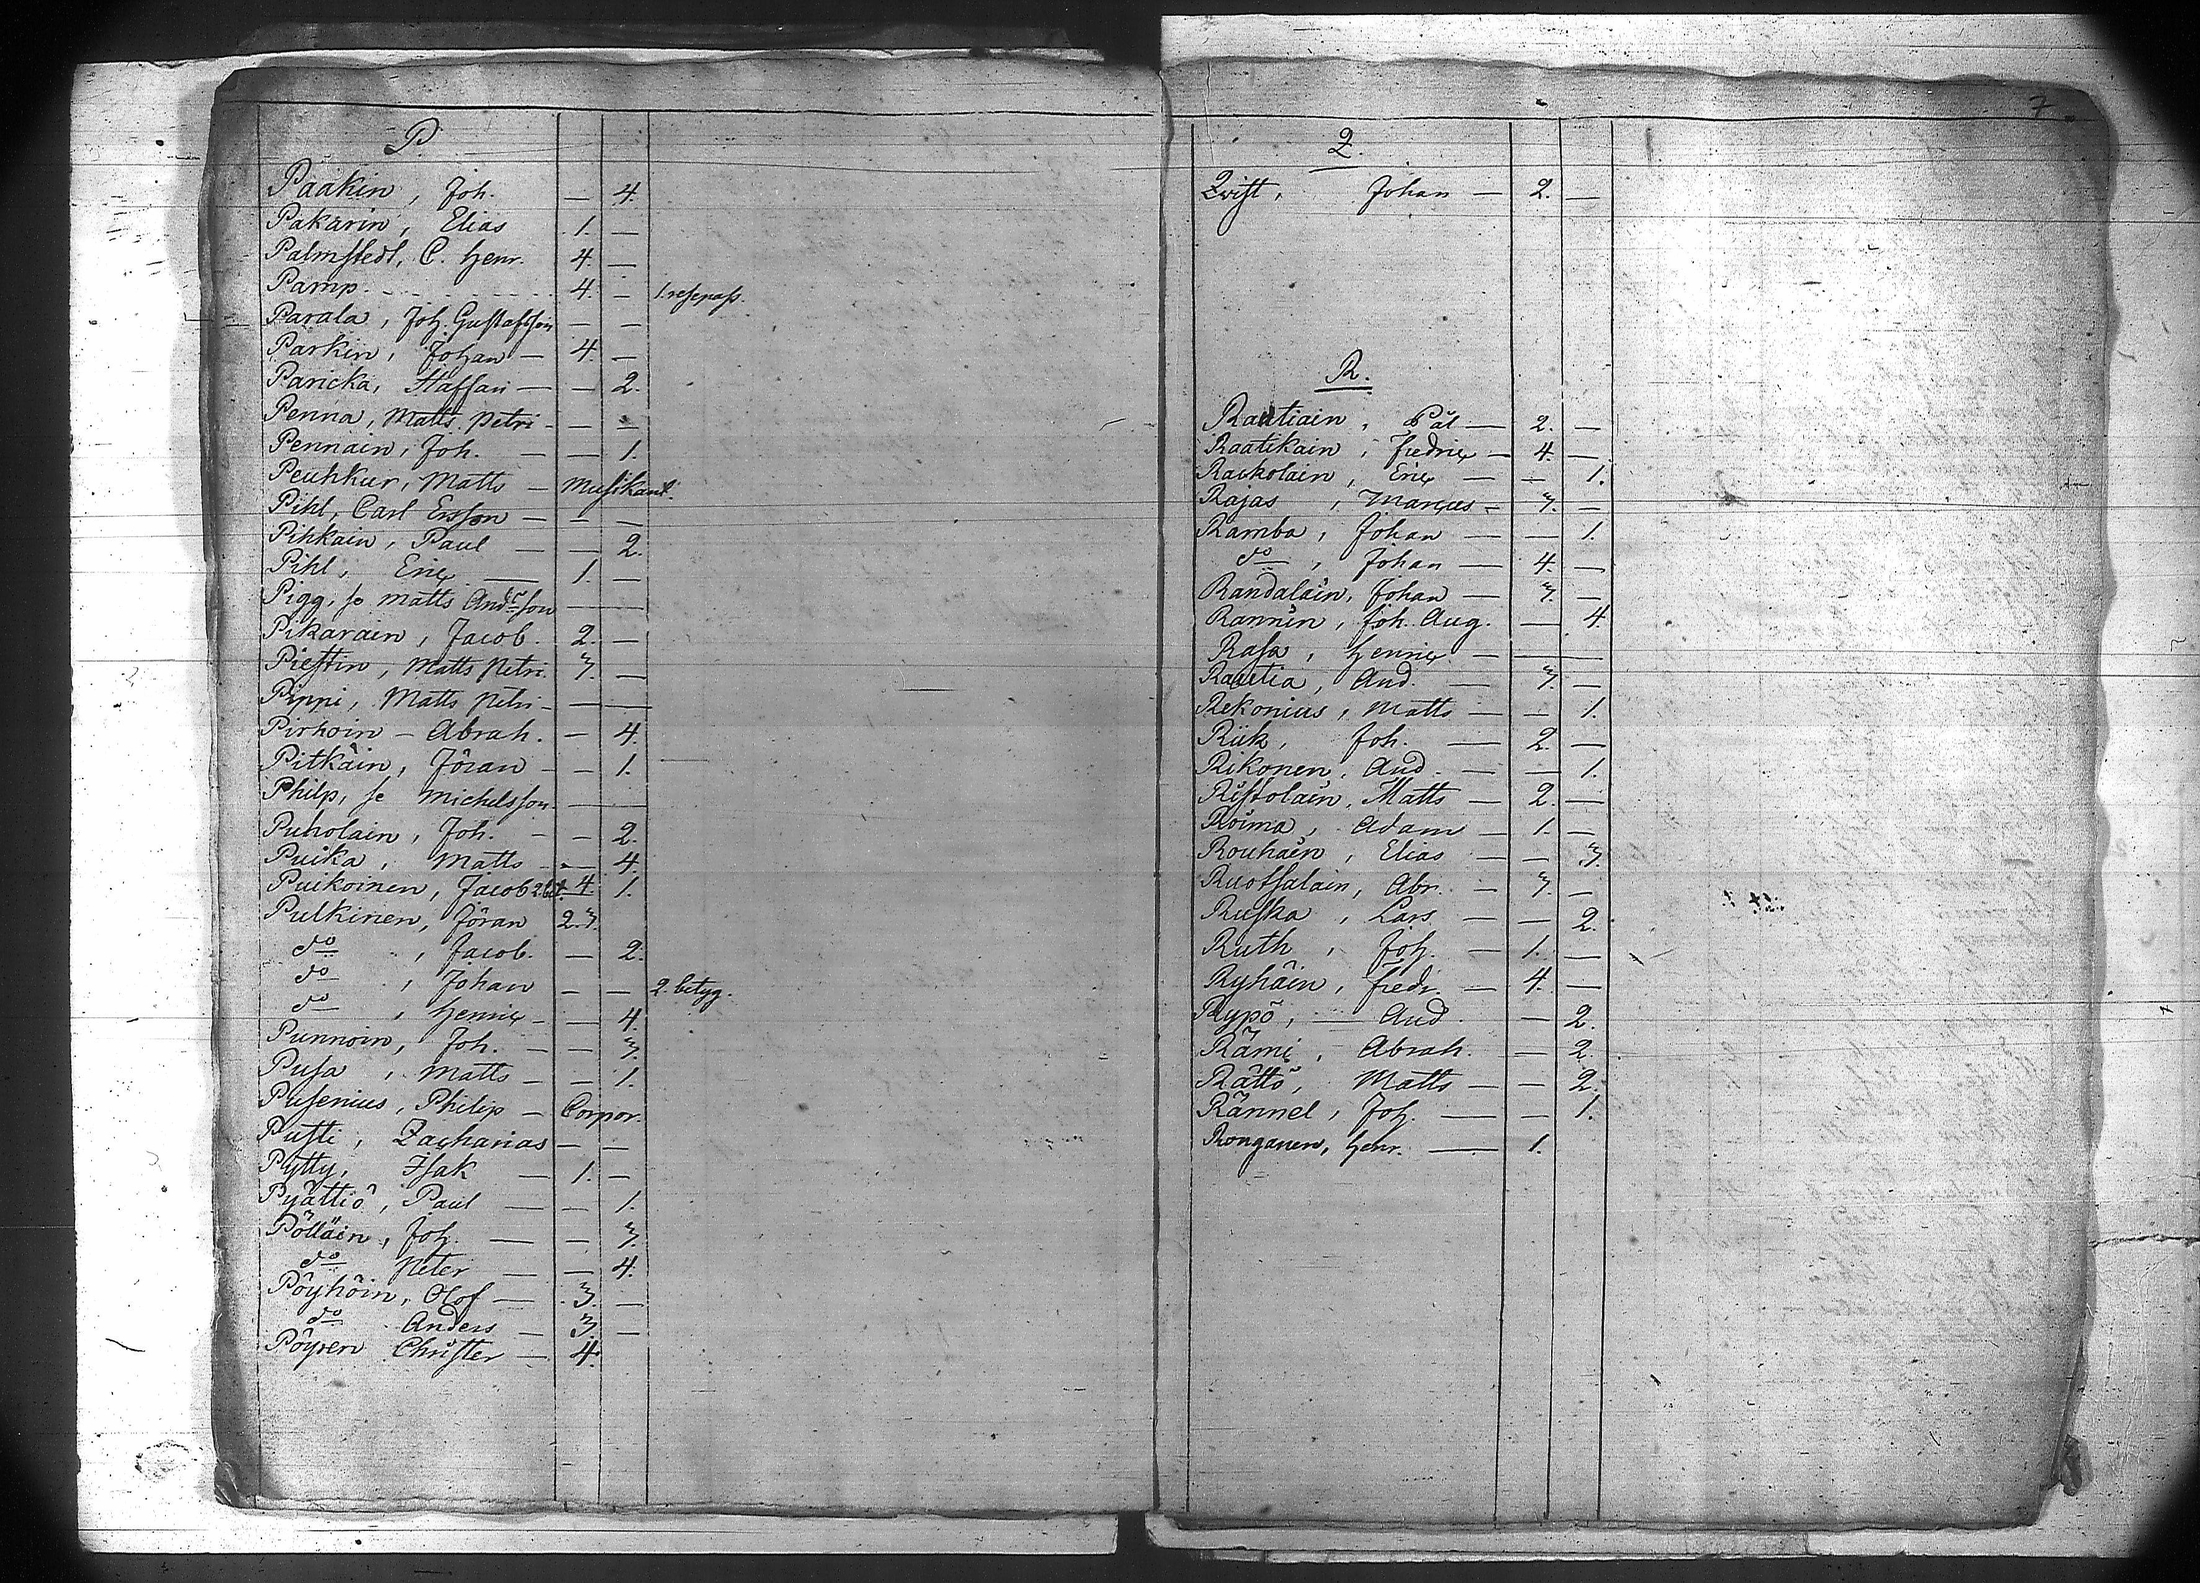 P.
Paakin, Joh. — 4.
Pakarin, Elias 1. —
Palmstedt, C. Henr. 4. —
Pamp. 4. — 1. resepass.
Parala, Joh. Gustafsson — —
Parkin, Johan — 4. —
Paricka, Staffan — — 2.
Penna, Matts Petri — — —
Pennain, Joh. — — 1.
Peuhkur, Matts — Musikant.
Pihl, Carl Ersson — — —
Pihkain, Paul — — 2.
Pihl, Eric — 1. —
Pigg, se Matts Andersson — —
Pikarain, Jacob. 2. —
Piestin, Matts Petri. 3. —
Pippi, Matts Petri — — —
Pirhoin — Abrah. — 4.
Pitkäin, Jöran — — 1.
Philp, se Michelsson — —
Puholain, Joh. — — 2.
Puika, Matts — — 4.
Puikoinen, Jacob 2 bet. 4. 1.
Pulkinen, Jöran 2. 3.
do, Jacob. — 2.
do, Johan — — 2. betyg.
do, Henric — — 4.
Punnoin, Joh. — — 3.
Pusa, Matts — — 1.
Pusenius, Philip — Corpor.
Pusti, Zacharias — —
Pytty, Isak — 1. —
Pyättiö, Paul — — 1.
Pölläin, Joh. — — 3.
do Peter — — 4.
Pöyhöin, Olof — 3. —
do Anders — 3. —
Pöyren Christer — 4.
7
Q.
Qvist, Johan — 2. —
R.
Rautiain, Pål — 2. —
Raatikain, Fredric — 4. —
Raukolain, Eric — — 1.
Rajas, Marcus — 3. —
Ramba, Johan — — 1.
do, Johan — 4. —
Randalain, Johan — 3. —
Rannin, Joh. Aug. — 4.
Rasa, Henric — — —
Rautia, And. — 3. —
Rekonius, Matts — — 1.
Riik, Joh. — 2. —
Rikonen, And. — — 1.
Ristolain, Matts — 2. —
Roima, Adam — 1. —
Rouhain, Elias — — 3.
Ruotsalain, Abr. — 3. —
Ruska, Lars — — 2.
Ruth, Joh. — 1. —
Ryhäin, Fredr. — 4. —
Rypö, — And — 2.
Rämi, Abrah. — 2.
Rättö, Matts — — 2.
Rännel, Joh. — — 1.
Ronganen, Henr. — 1.